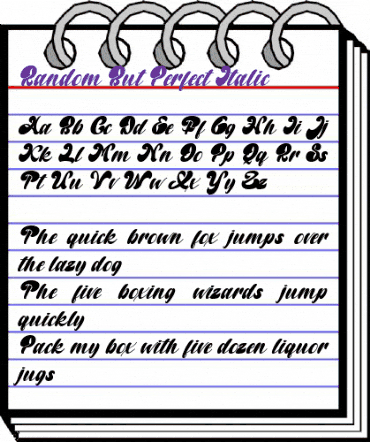 Random But Perfect Italic
Aa Bb Cc Dd Ee Ff Gg Hh Ii Jj
Kk Ll Mm Nn Oo Pp Qq Rr Ss
Tt Uu Vv Ww Xx Yy Zz
The quick brown fox jumps over
the lazy dog
The five boxing wizards jump
quickly
Pack my box with five dozen liquor
jugs